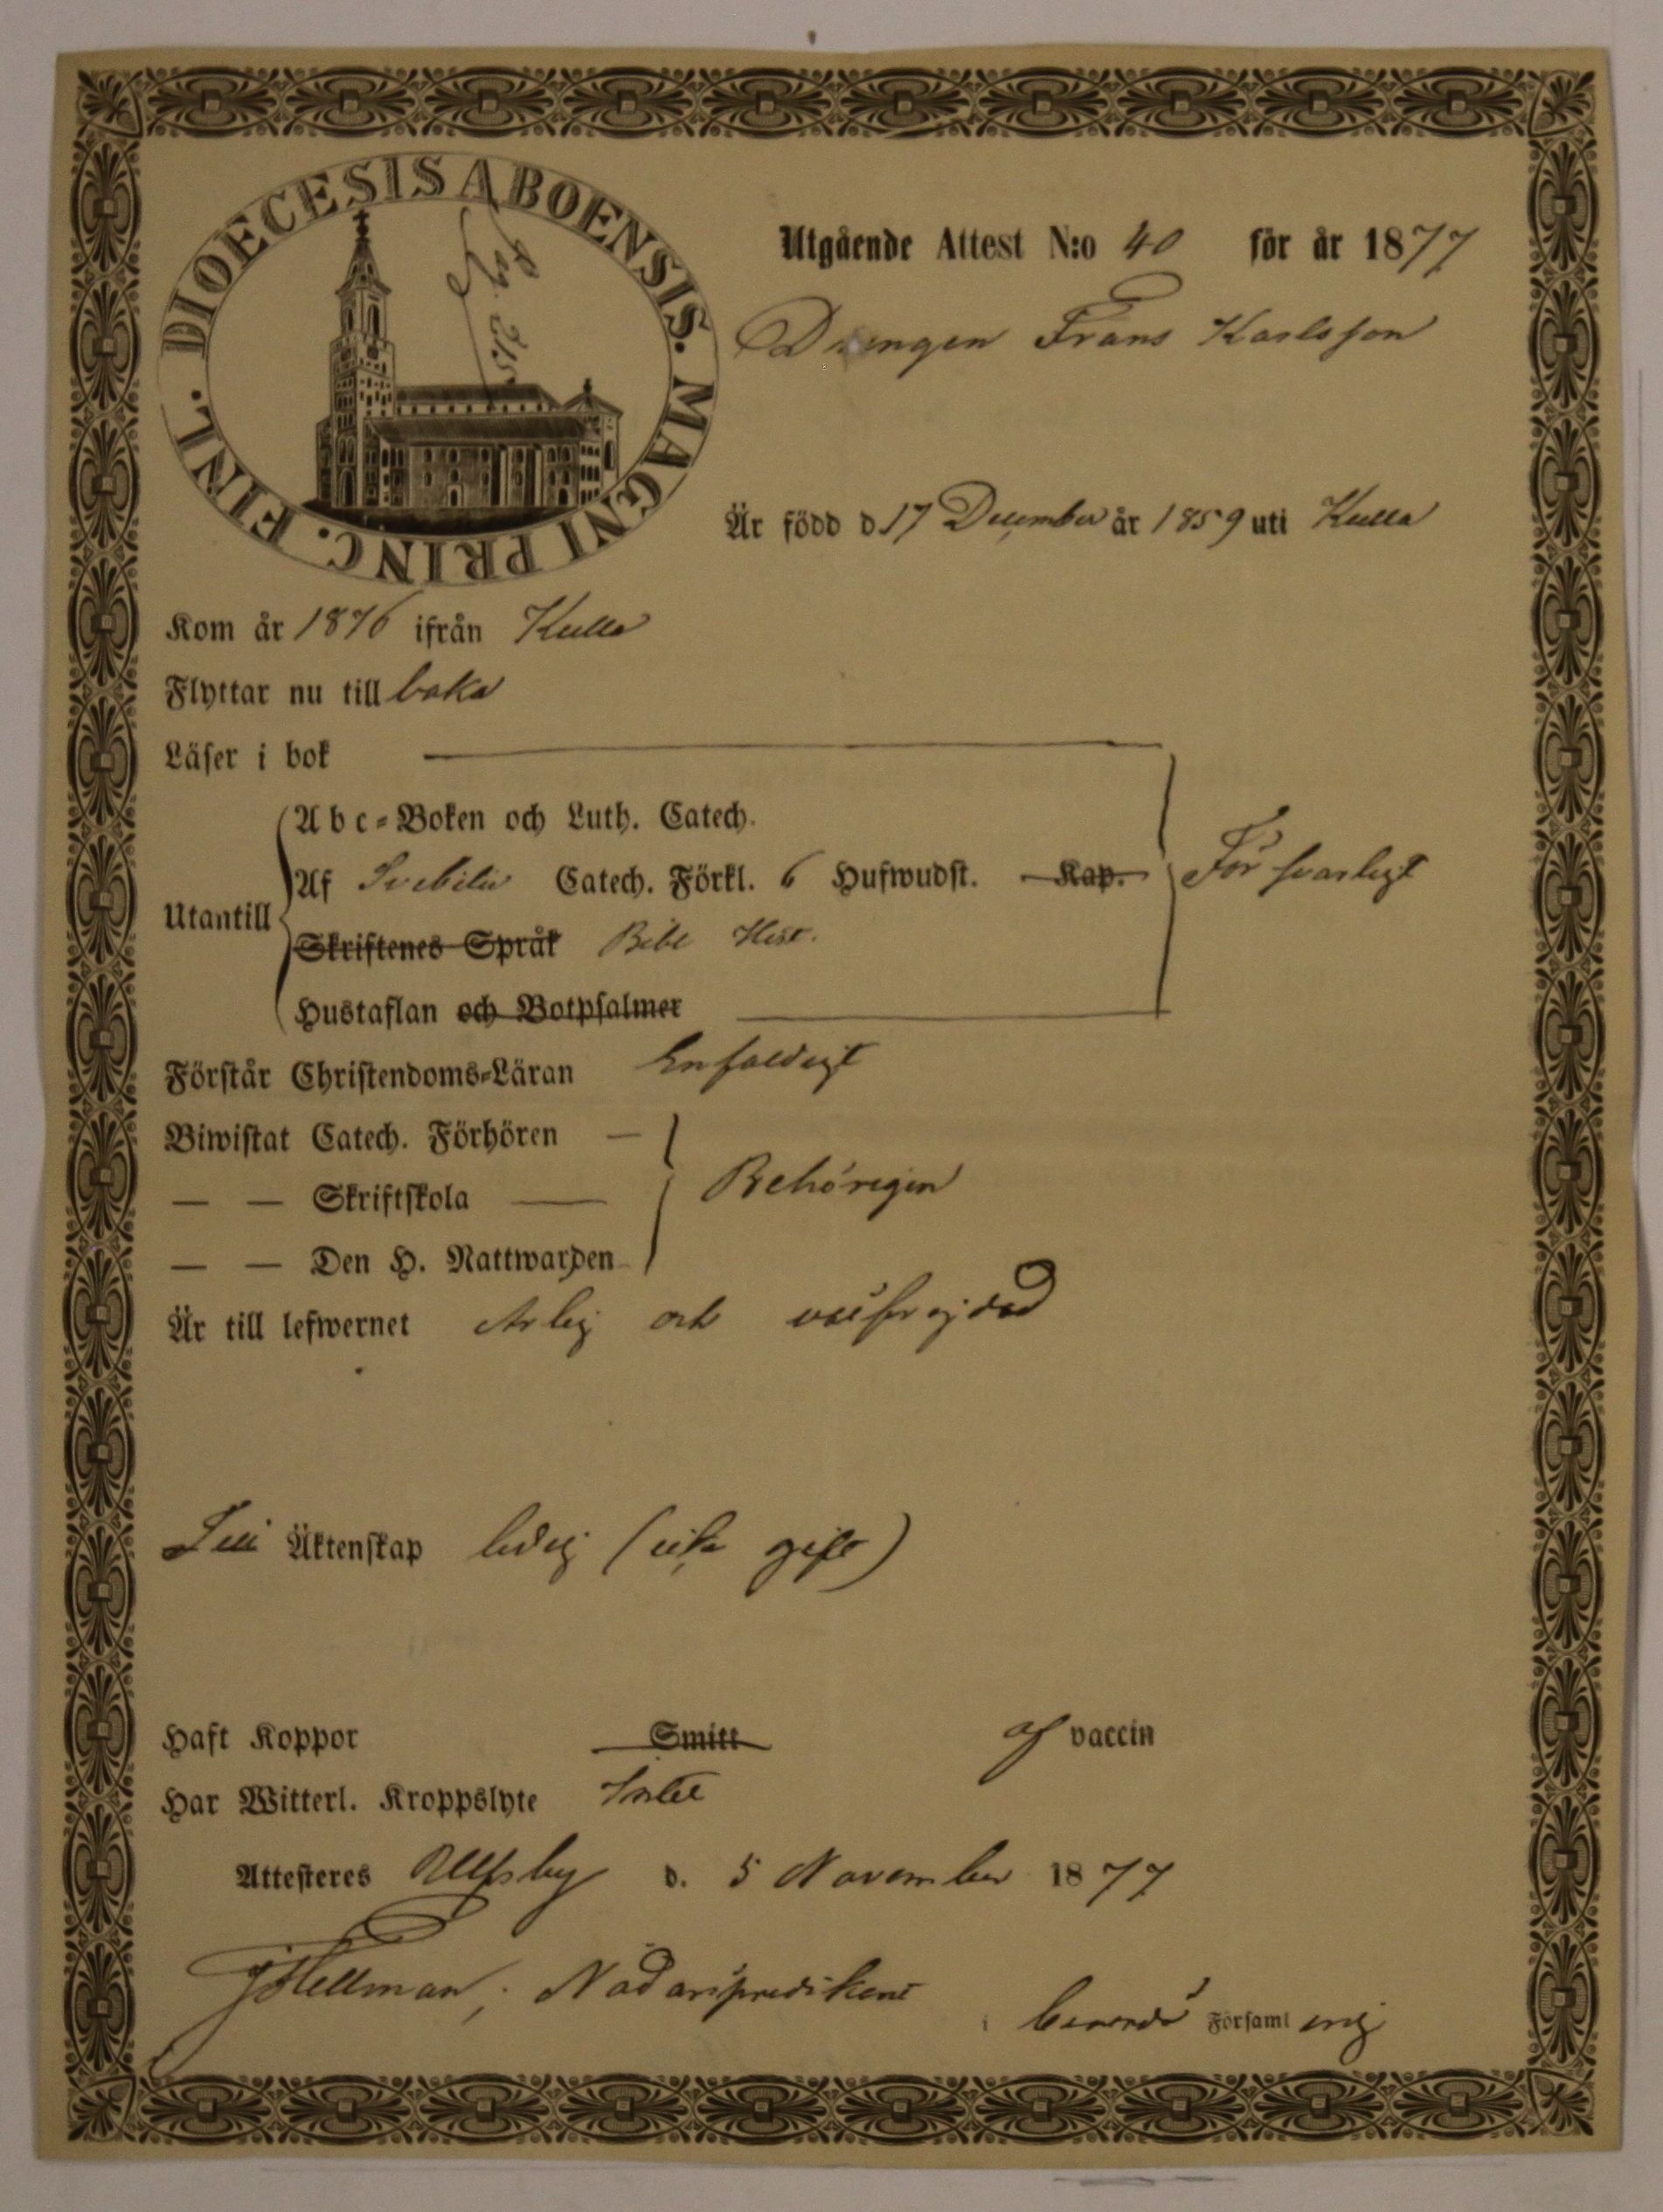 DIOECESIS ABOENSIS. MAGNI PRINC. FINL.
Pag. 215
Utgående Attest N:o 40 för år 1877
Drengen Frans Karlsson
Är född d 17 December år 1859 uti Kulla
Kom år 1876 ifrån Kulla
Flyttar nu till baka
Läser i bok
Abc-Boken och Luth. Catech.
Utantill Af Svebilii Catech. Förkl. 6 Hufwudst. Kap. Försvarligt
Skriftenes Språk Bibl Hist.
Hustaflan och Botpsalmer
Förstår Christendoms-Läran Enfaldigt
Biwistat Catech. Förhören —
— — Skriftskola — Behörigen
— — Den H. Nattwarden
Är till lefwernet Ärlig och välfrejdad
Till Äktenskap ledig (icke gift)
Haft Koppor Smitt af vaccin
Har Witterl. Kroppslyte Intet
Attesteres Ulfsby d. 5 November 1877
J Hellman, Nådårspredikant
i berörde Församl ing